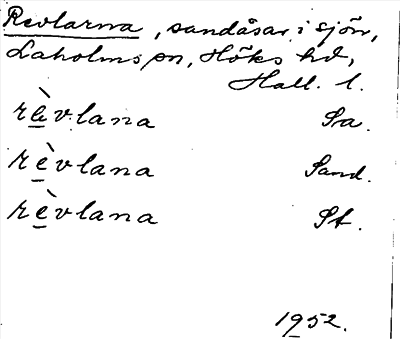 Revlarna, sandåsar i sjön,
Laholms sn, Höks hd,
Hall. l.
rèvlana Sa.
rèvlana Sand.
rèvlana St.
1952.